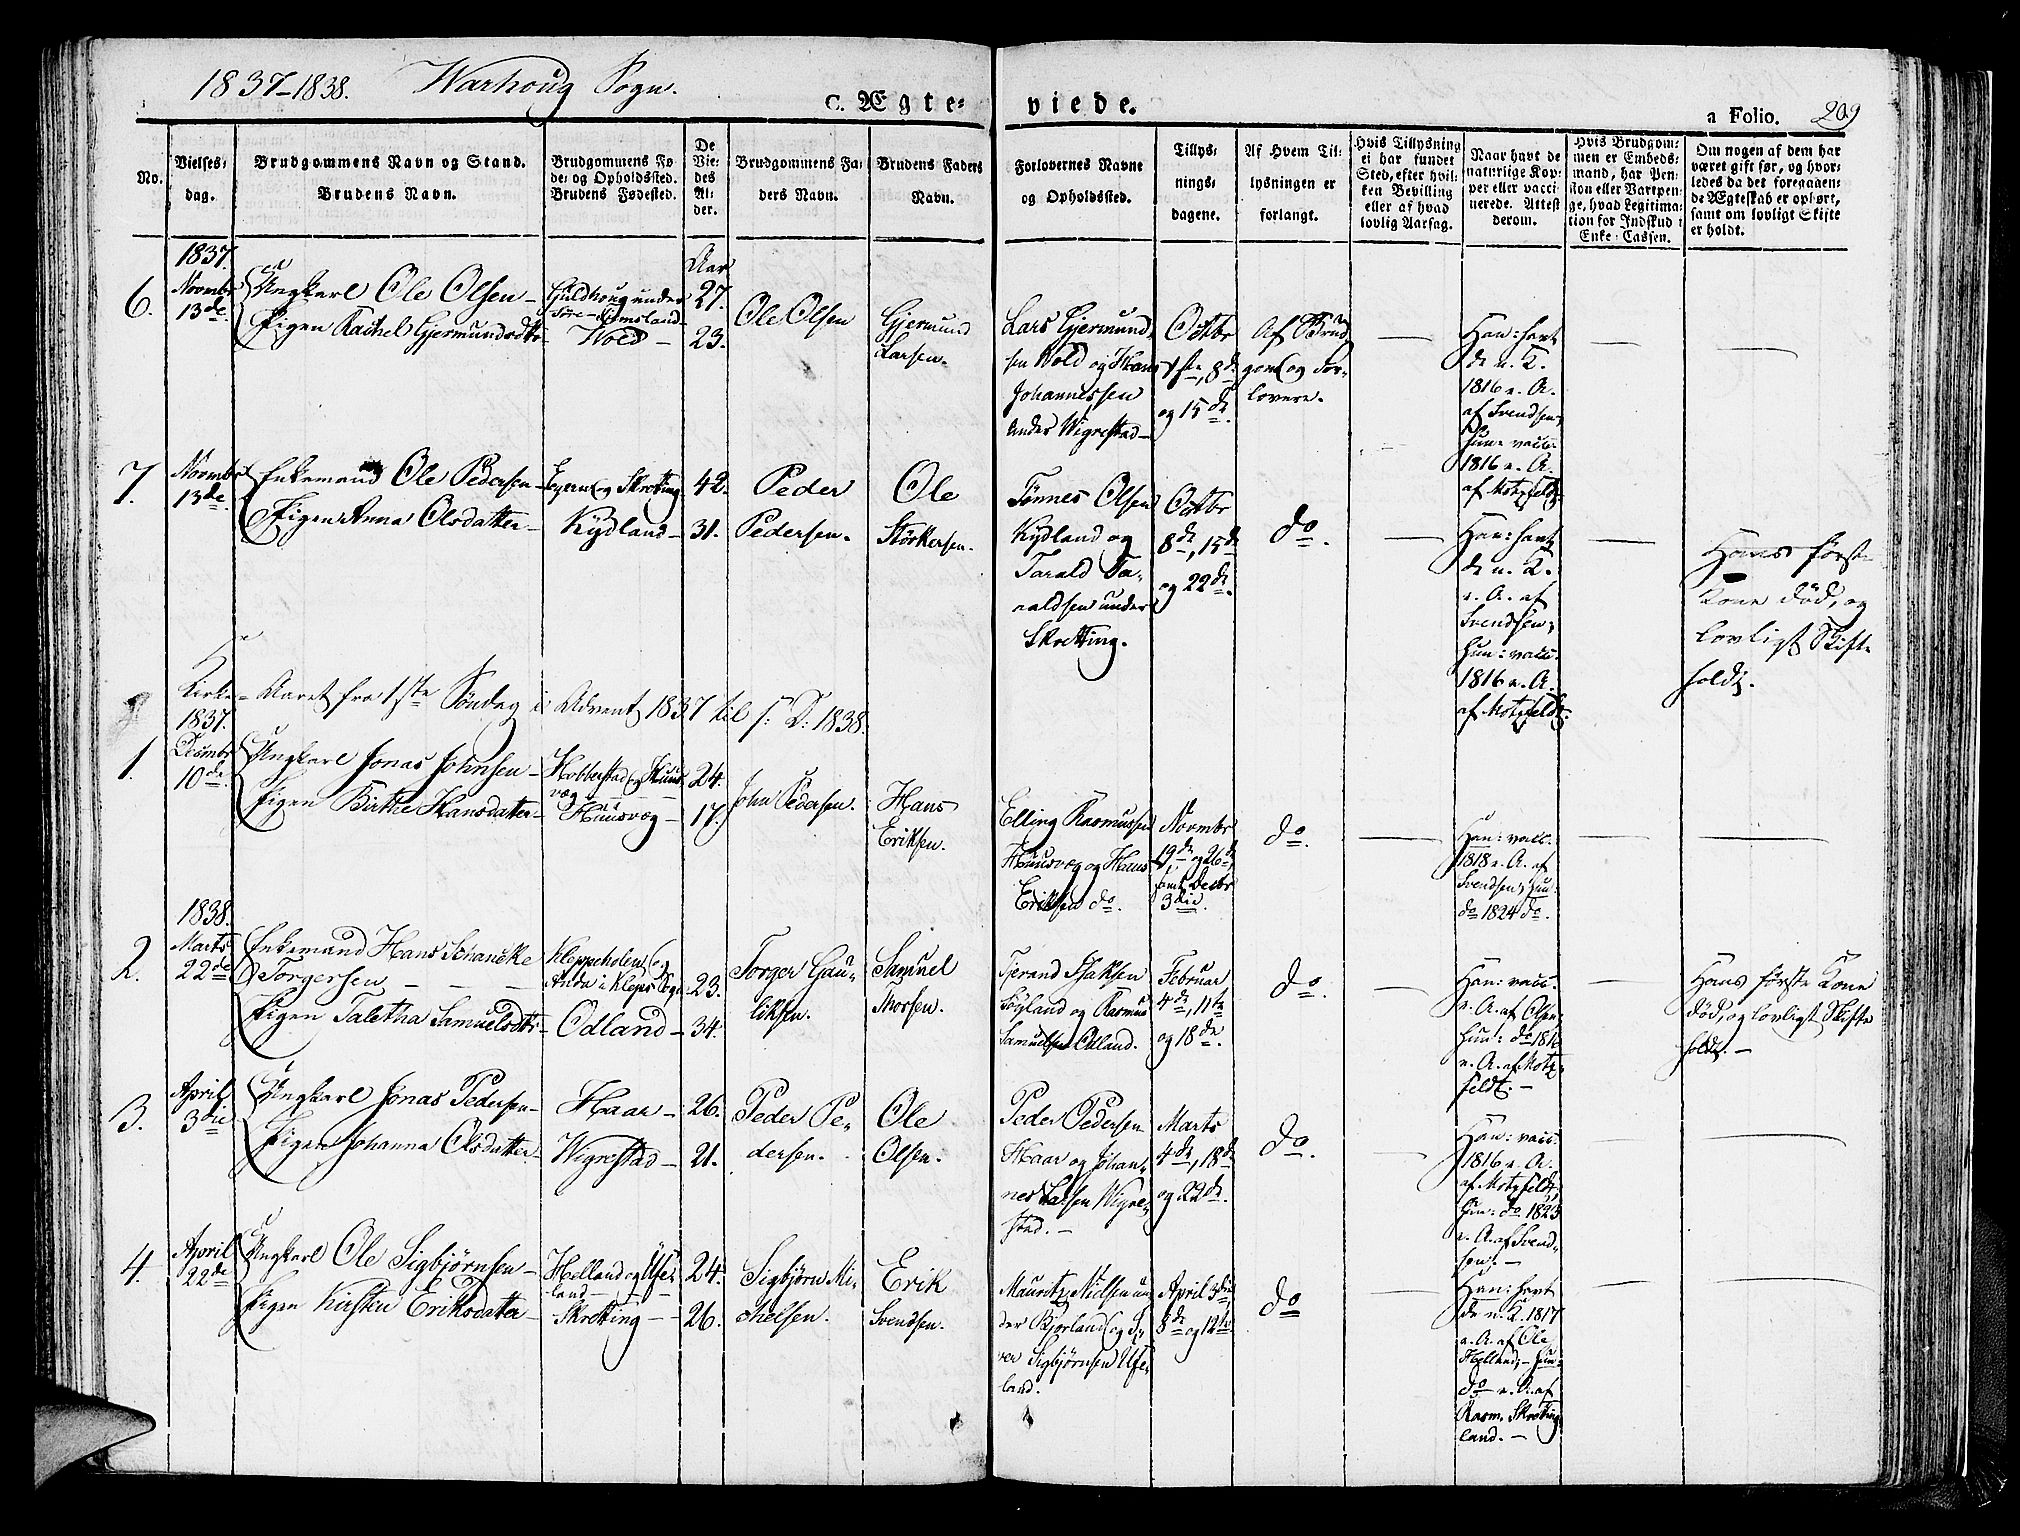 1837-1838. Warhoug Sogn.
C. Ægteviede.
a Folio. 209
No.
Vielses-
dag.
Brudgommens Navn og Stand.
Brudens Navn.
Brudgommens Fø-
de- og Opholdssted.
Brudens Fødested.
De
Vie-
des
Al-
der.
Brudgommens Fa-
ders Navn.
Brudens Faders
Navn.
Forlovernes Navne
og Opholdssted.
Tillys-
nings-
dagene.
Af Hvem Til-
lysningen er
forlangt.
Hvis Tillysning
ei har fundet
Sted, efter hvil-
ken Bevilling
eller af hvad
lovlig Aarsag.
Naar havt de
naturlige Kop-
per eller vacci-
nerede. Attest
derom.
Hvis Brudgom-
men er Embeds-
mand, har Pen-
sion eller Vartpen-
ge, hvad Legitima-
tion for Indskud i
Enke-Cassen.
Om nogen af dem har
været gift før, og hvor-
ledes da det foregaaen-
de Ægteskab er ophørt,
samt om lovligt Skifte
er holdt.
1837.
6.
Novmbr
13de
Ungkarl Ole Olsen
Pigen Rachel Gjermundsdttr
Guldhoug under
Wold
Aar
27.
23.
Ole Olsen
Gjermund
Larsen.
Lars Gjermund-
sen Wold og Hans
Johannessen
under Wigrestad
Octbr
1ste, 8de
og 15de.
Af Brud-
gom og For-
lovere.
Han: havt
de n. K.
1816 e. A.
af Svendsen;
hun vacc.
1816 e. A.
af Motzfeldt.
7.
Novmbr
13de.
Enkemand Ole Pedersen
Pigen Anna Olsdatter
Egern og Skretting
Kydland
42.
31.
Peder
Pedersen.
Ole
Størkersen.
Tønnes Olsen
Kydland og
Tarald Ta-
raldsen under
Skretting.
Octbr
8de, 15de
og 22de.
do.
Han: havt
de n. K.
e. A. af
Svendsen;
hun: vacc.
1816 e. A.
af Motzfeldt.
Hans første
Kone død, og
lovligt Skifte
holdt.
Kirke-Aaret fra 1ste Søndag i Advent 1837 til s: D: 1838.
1837.
1.
Decmbr
10de.
Ungkarl Jonas Johnsen
Pigen Birthe Hansdatter
Hobberstad og Huus-
væg
Huusvæg
24.
17.
John Pedersen.
Hans
Eriksen.
Elling Rasmussen
Huusvæg og Hans
Eriksen do.
Novmbr
19de og 26de
samt Decbr
3die.
do.
Han: vacc.
1818 e. A. af
Svendsen; hun:
do 1824 do.
1838.
2.
Marts
22de
Enkemand Hans Schancke
Torgersen
Pigen Taletha Samuelsdttr
Kleppeholen og
Anda i Kleps Sogn
Odland
23.
34.
Torger Gau-
tiksen.
Samuel
Thorsen.
Tjerand Isaksen
Sigland og Rasmus
Samuelsen Odland.
Februar
4de, 11te
og 18de.
do.
Han: vacc.
e. A. af Olsen
hun: do 1816
e. A. af Motz-
feldt.
Hans første Kone
død, og lovligt Skifte
holdt.
3.
April
3die
Ungkarl Jonas Pedersen
Pigen Johanna Olsdatter
Haar
Wigrestad
26.
21.
Peder Pe-
dersen.
Ole
Olsen.
Peder Pedersen
Haar og Johan-
nes Larsen Wigre-
stad.
Marts
4de, 18de
og 22de.
do.
Han: vacc.
1816 e. A.
af Motzfeldt,
hun: do 1823
e. A. af Svend-
sen.
4.
April
22de
Ungkarl Ole Sigbjørnsen
Pigen Kirsten Eriksdatter
Helland og Ufse-
land
Skretting
24.
26.
Sigbjørn Mi-
chelsen.
Erik
Svendsen.
Mauritz Nielsen un-
der Bjorland og I-
ver Sigbjørnsen Ufse-
land.
April 3die,
8de og 12te.
do
Han: havt
de n. K. 1817
e. A. af Ole
Helland, hun:
do e. A. af
Rasm. Skretting-
land.